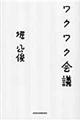 ワクワク会議
堀公俊